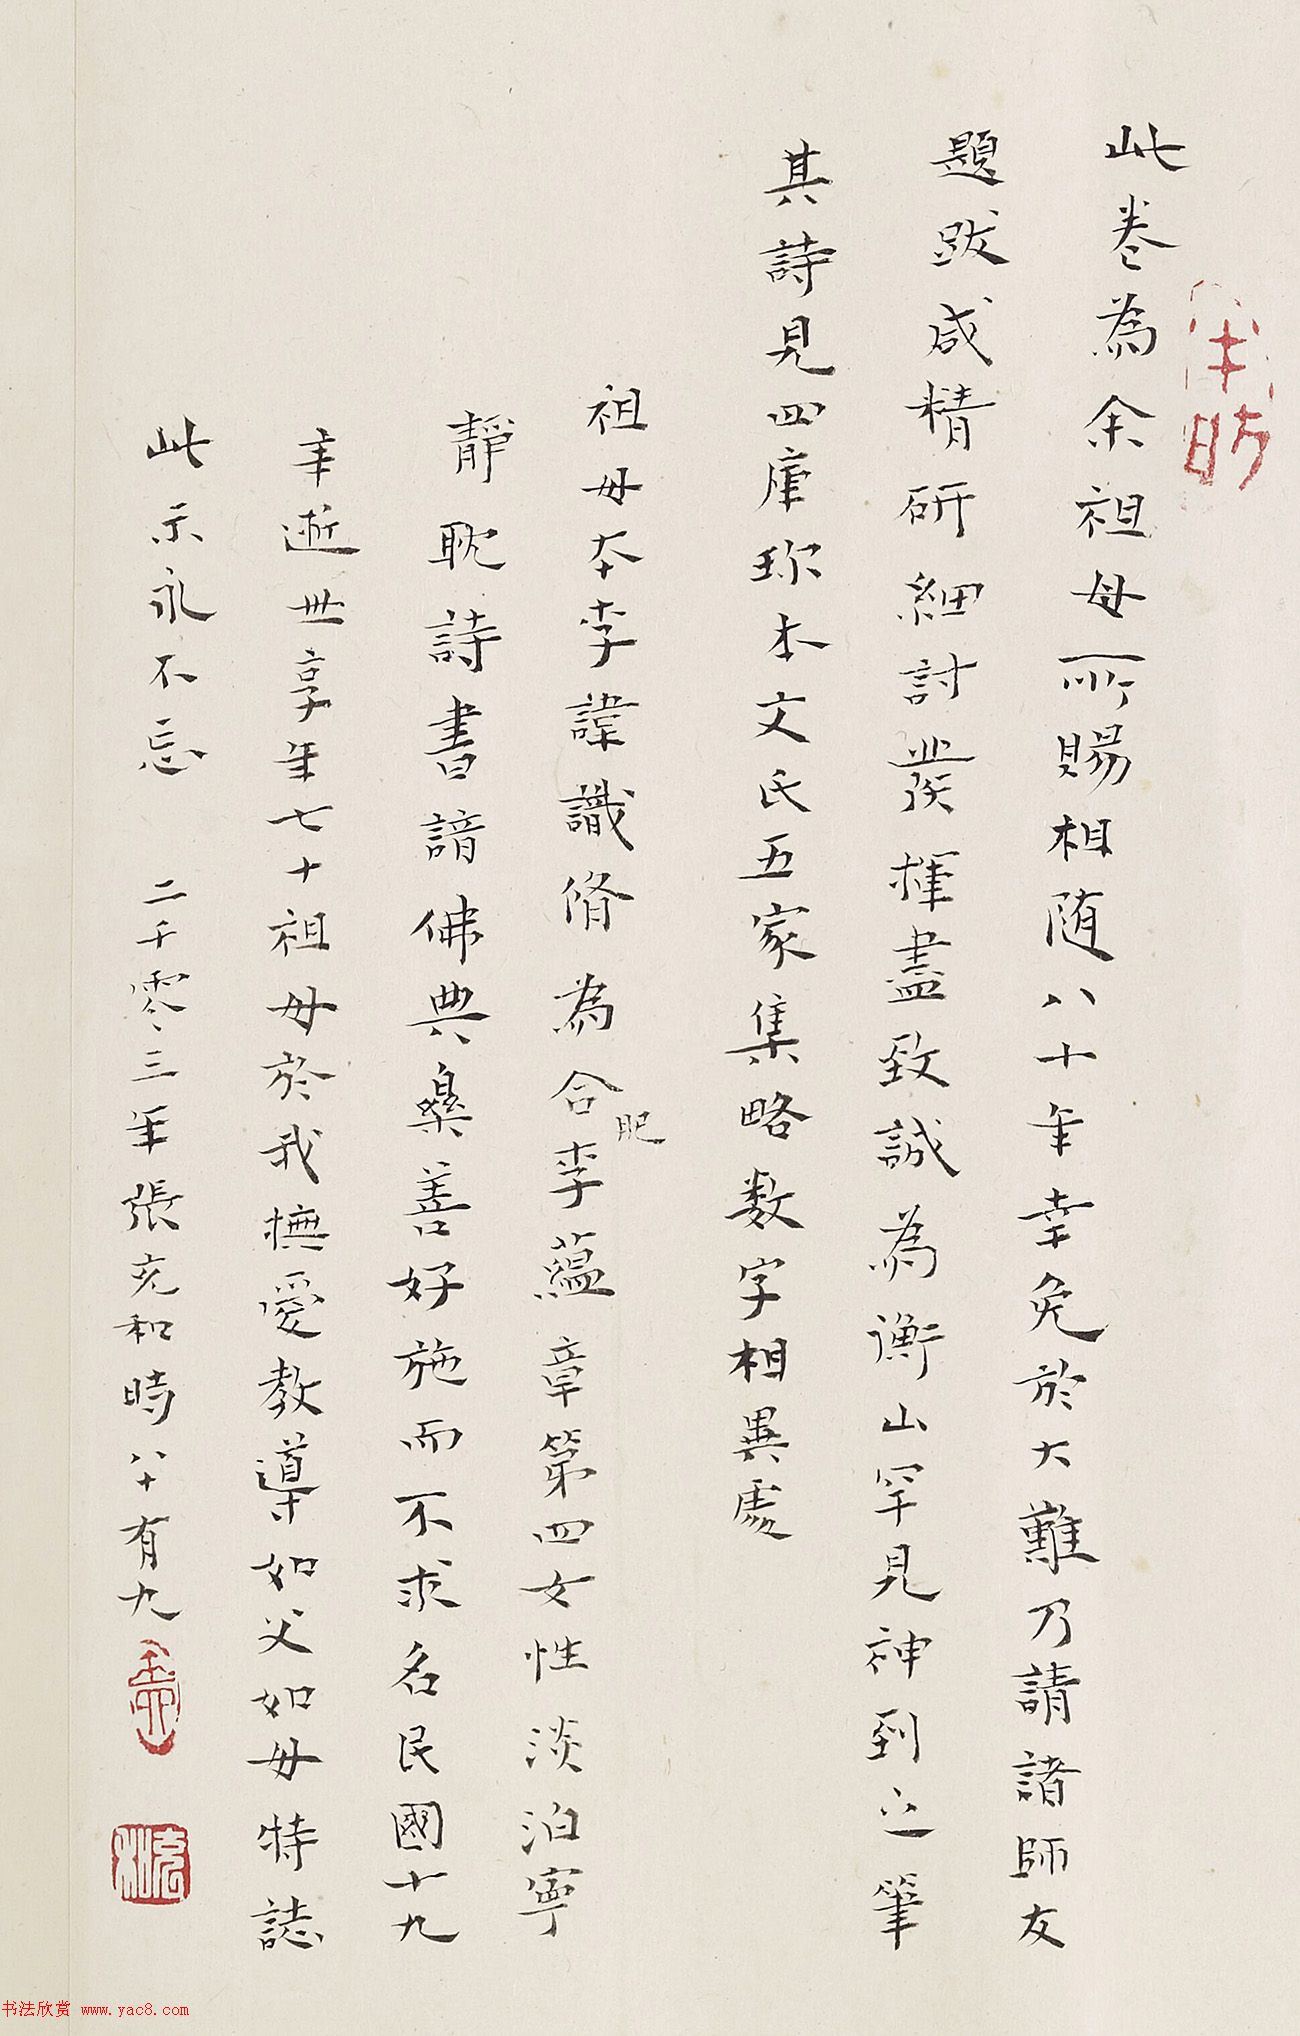 此卷為余祖母所賜相随八十年幸免於大難乃請諸師友
題跋咸精研細討發揮盡致誠為衡山罕見神到之筆
其詩見四庫珎本文氏五家集略数字相異處
祖母本李諱識脩為合肥李蘊章第四女性淡泊寧
靜耽詩書諳佛典樂善好施而不求名民國十九
年逝世享年七十祖母於我撫愛教導如父如母特誌
此示永不忘 二千零三年張充和時八十有九
充和
书法欣赏 www.yac8.com